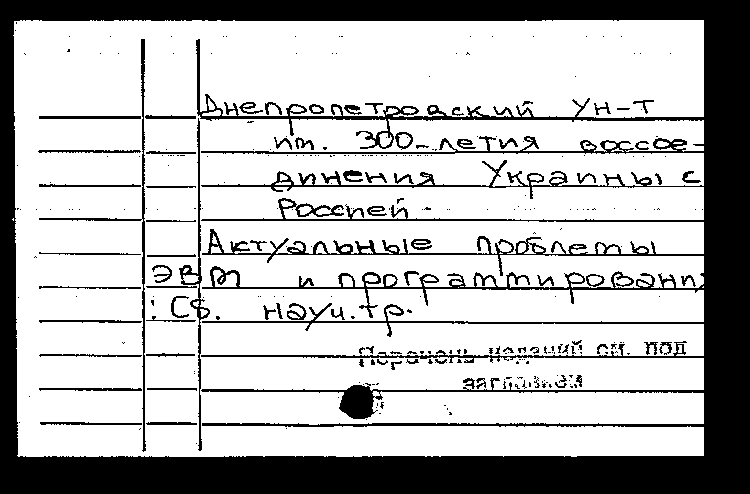 Днепропетровский ун-т
им. 300-летия воссое-
динения Украины с
Россией.
Актуальные проблемы
ЭВМ и программировани
: Сб. науч. тр.
Перечень изданий см. под
заглавием